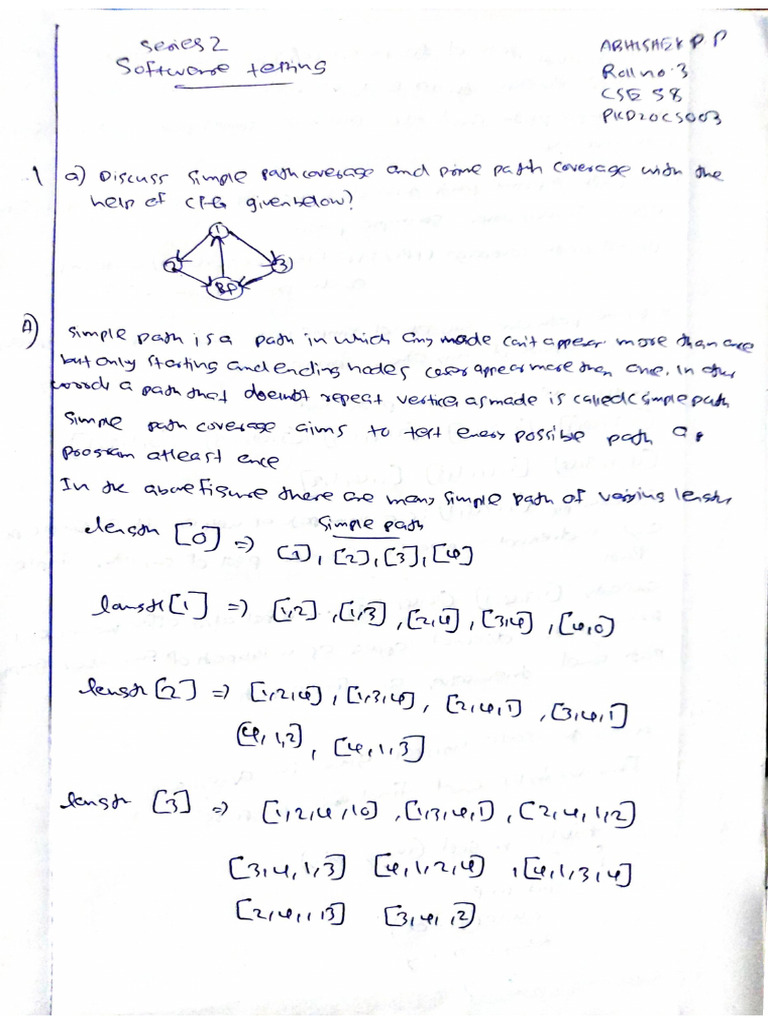 Series 2
Software testing
ABHISHEK P P
Roll no. 3
CSE S8
PKD20CS003
1 a) Discuss simple path coverage and prime path coverage with the
help of CFG given below?
1
2 3
A) Simple path is a path in which any node can't appear more than one
but only starting and ending nodes can appear more than one. In other
words a path that doesn't repeat vertices is called simple path
Simple path coverage aims to test every possible path
program atleast once
In the above figure there are many simple path of varying length
Simple path
length [0] => [1], [2], [3], [4]
length [1] => [1,2], [1,3], [2,4], [3,4], [4,0]
length [2] => [1,2,4], [1,3,4], [2,4,1], [3,4,1]
[4,1,2], [4,1,3]
length [3] => [1,2,4,10], [1,3,4,1], [2,4,1,2]
[3,4,1,3] [4,1,2,4], [4,1,3,4]
[2,4,1,3] [3,4, ,2]